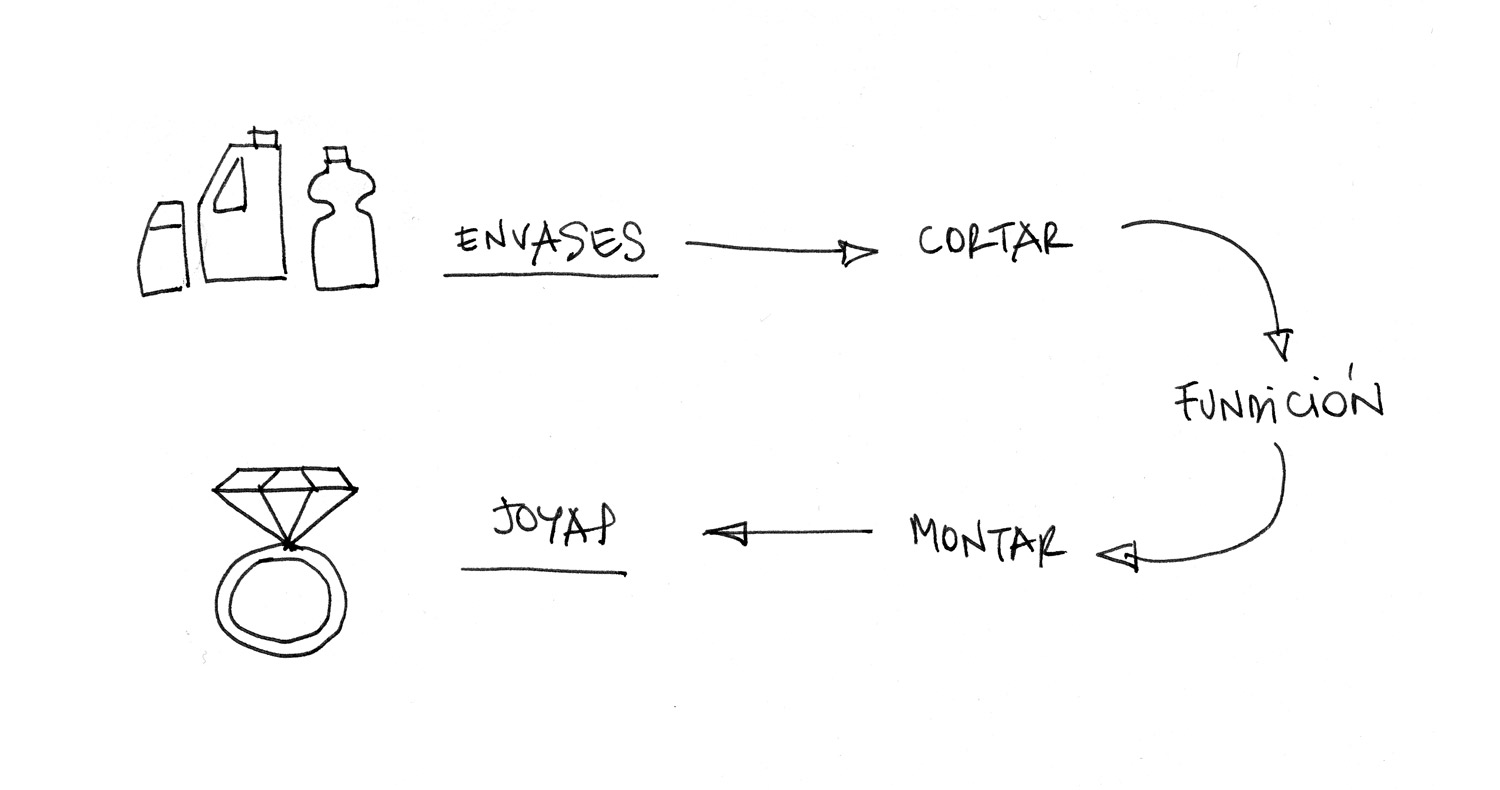 ENVASES
CORTAR
FUNDICIÓN
MONTAR
JOYAS